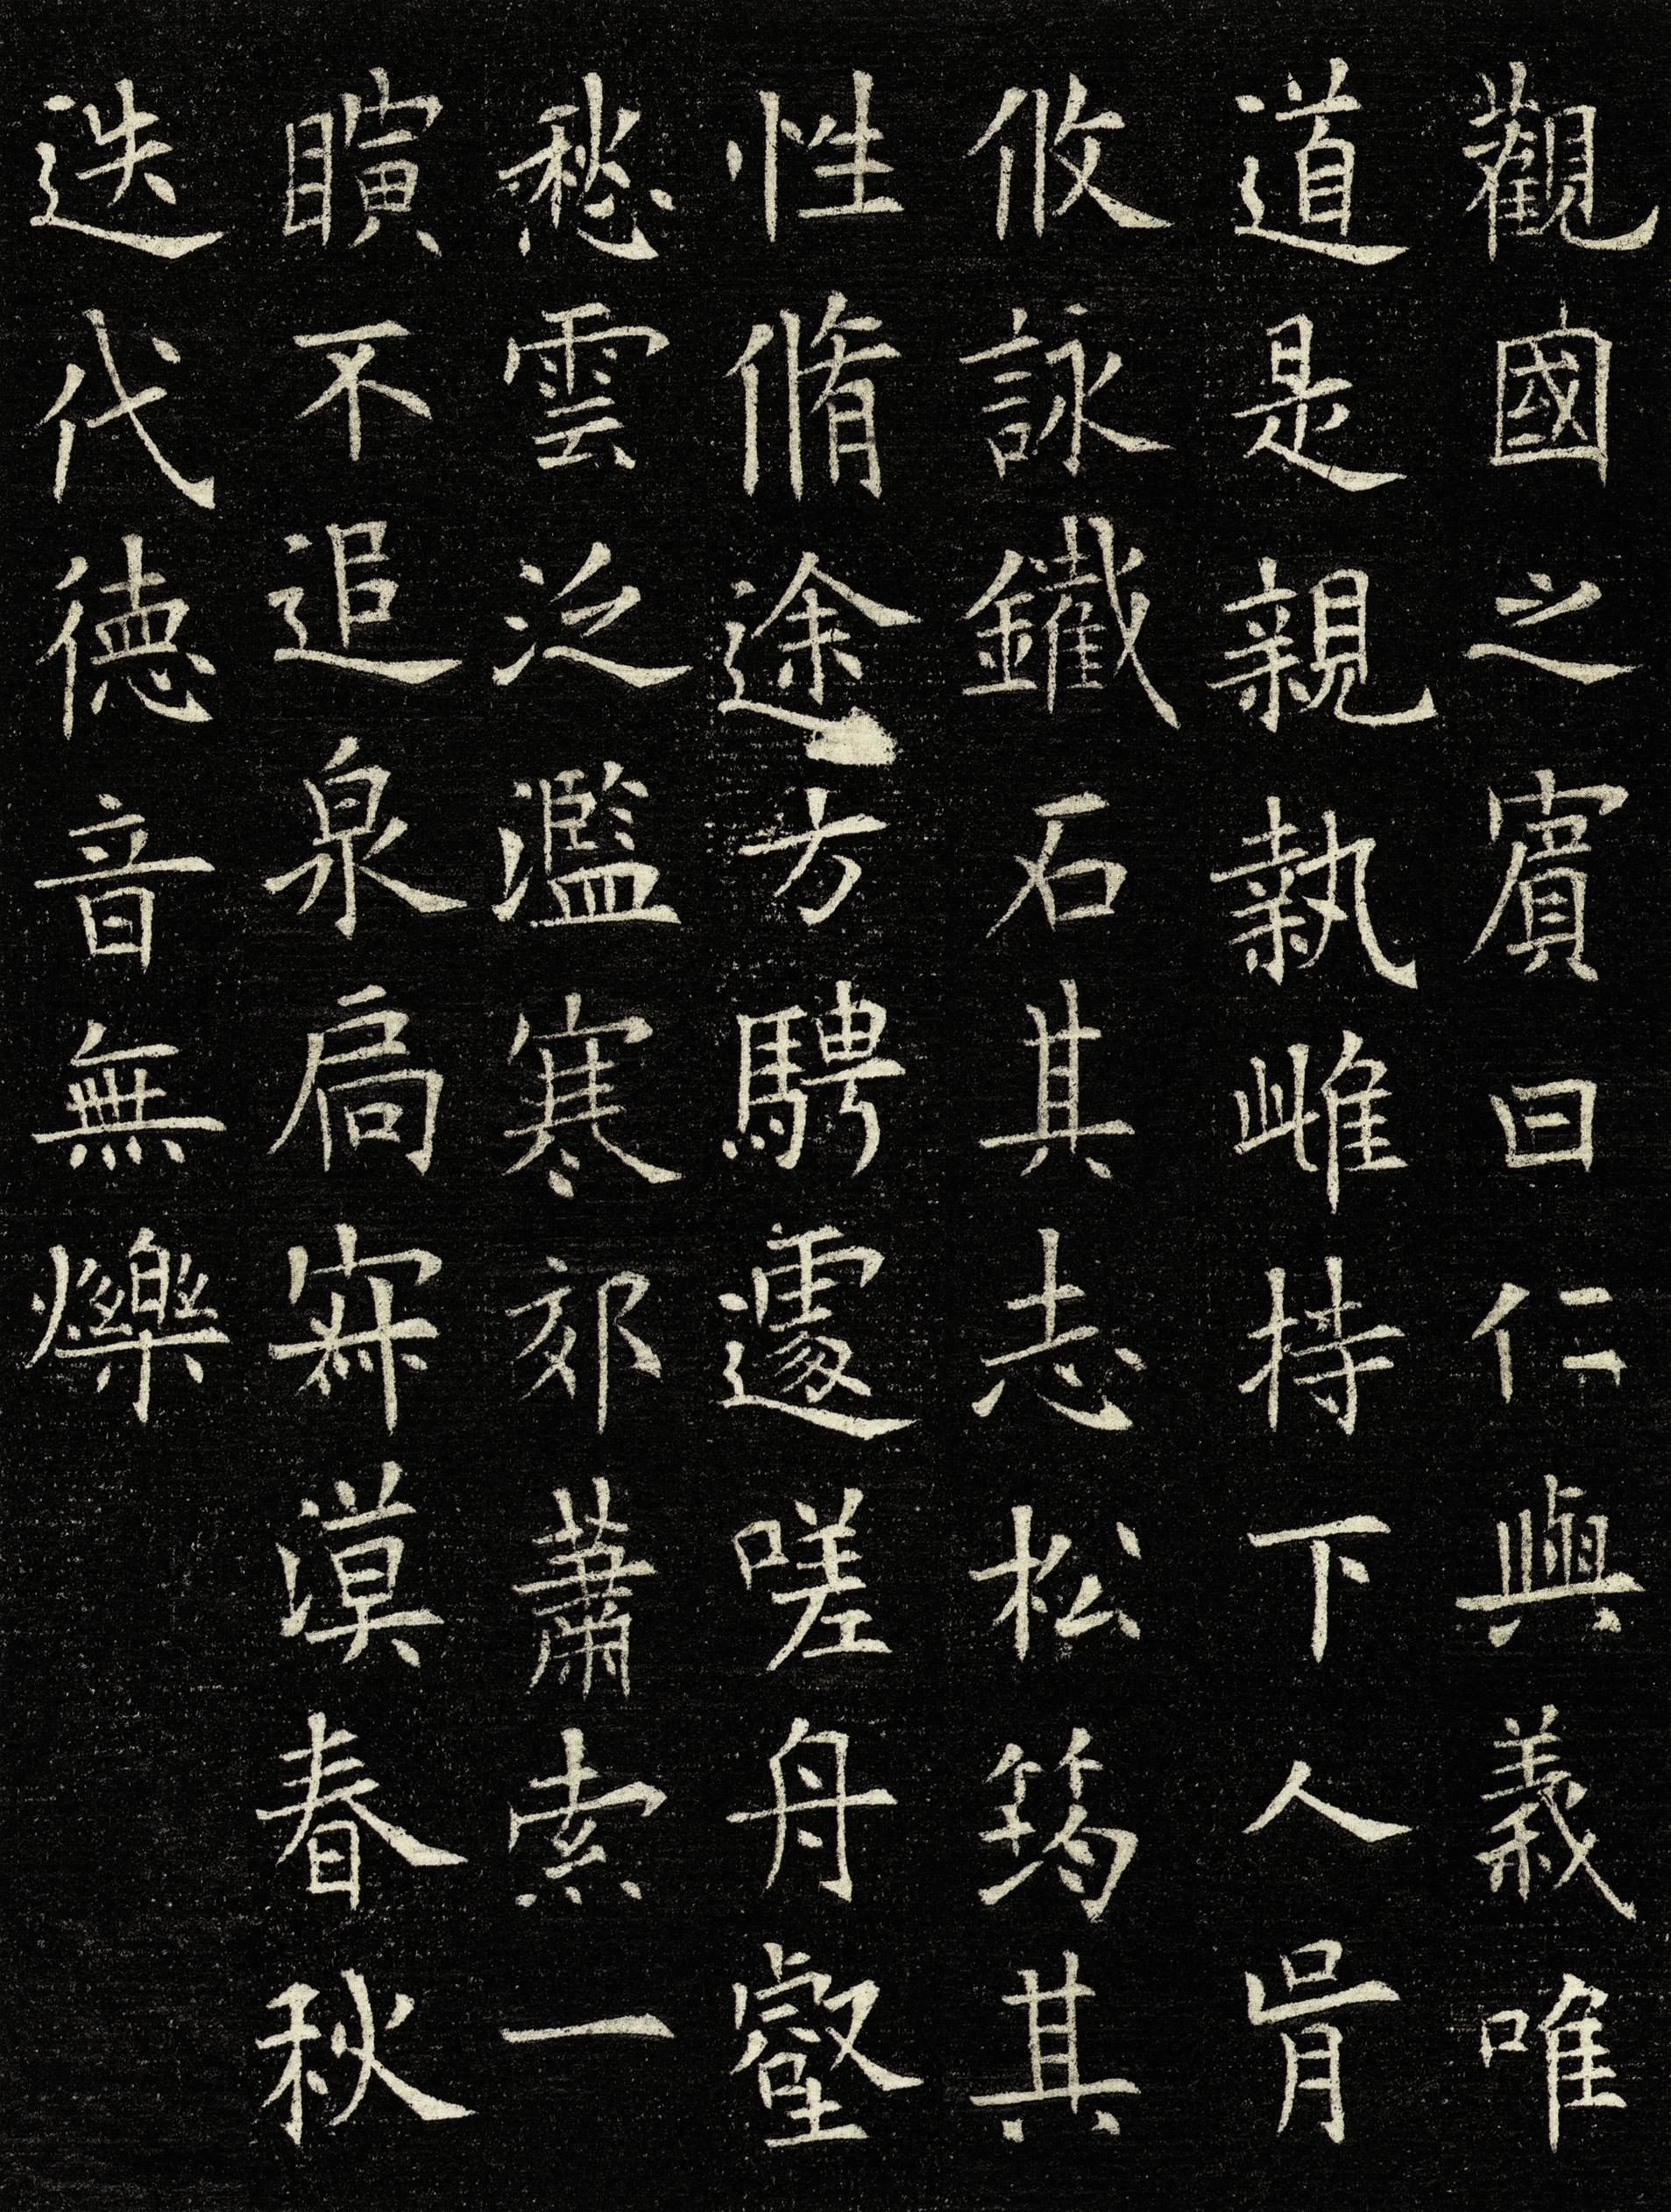 觀國之賔曰仁與義唯
道是親執雌持下人胥
攸詠鐵石其志松筠其
性脩途方騁遽嗟舟壑
愁雲泛濫寒郊蕭索一
瞚不追泉扃寂漠春秋
迭代德音無爍